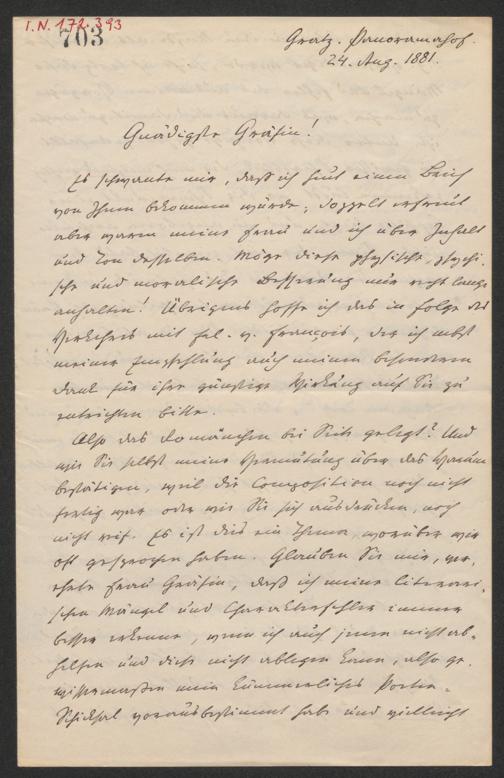 I.N. 172.393
703
Gratz. Panoramahof.
24. Aug. 1881.
Gnädigste Gräfin!
Es schwante mir, daß ich heut einen Brief
von Ihnen bekommen würde; doppelt erfreut
aber waren meine Frau und ich über Inhalt
und Ton desselben. Möge diese physische, psychi-
sche und moralische Besserung nur recht lange
anhalten! Übrigens hoffe ich das in Folge des
Verkehrs mit Frl. v. François, der ich nebst
meiner Empfehlung auch meinen besonderen
Dank für ihre günstige Wirkung auf Sie zu
entrichten bitte.
Also das Romänchen bei Seite gelegt? Und
wie Sie selbst meine Vermutung über das Warum
bestätigen, weil die Composition noch nicht
fertig war oder wie Sie sich ausdrücken, noch
nicht reif. Es ist dies ein Thema, worüber wir
oft gesprochen haben. Glauben Sie mir, ver-
ehrte Frau Gräfin, daß ich meine literari-
schen Mängel und Charakterfehler immer
besser erkenne, wenn ich auch jenen nicht ab-
helfen und diese nicht ablegen kann, also ge-
wissermaßen mein kümmerliches Poeten-
Schicksal vorausbestimmt habe und vielleicht